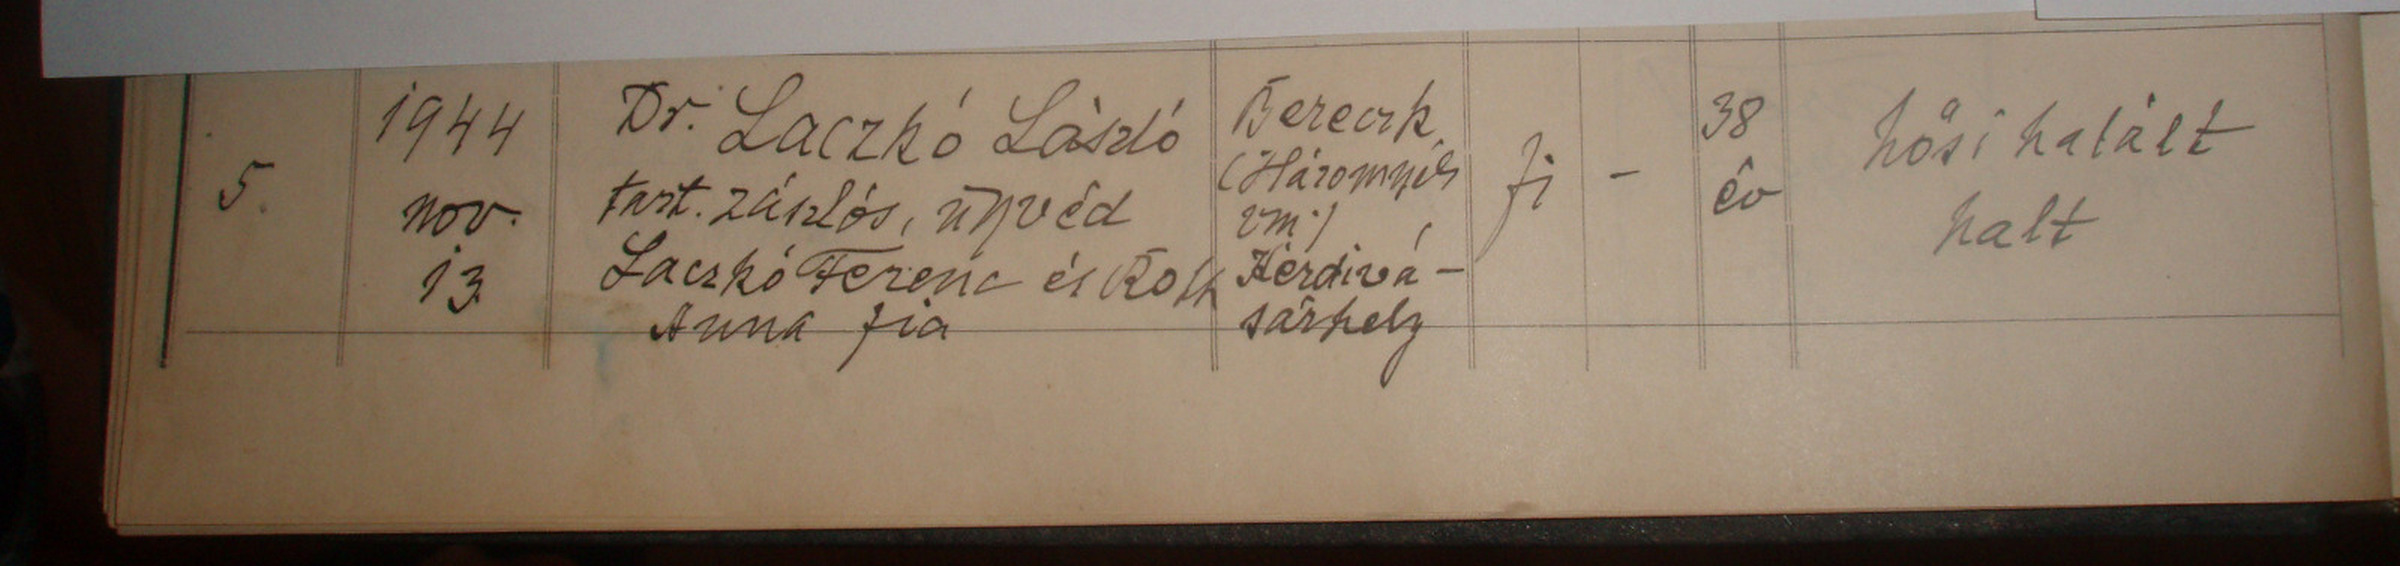 5.
1944
nov.
13.
Dr. Laczkó László
tart. zászlós, ügyvéd
Laczkó Ferenc és Roth
Anna fia
Bereczk
(Háromszék
vm.)
Kézdivá-
sárhely
fi
-
38
év
hősi halált
halt